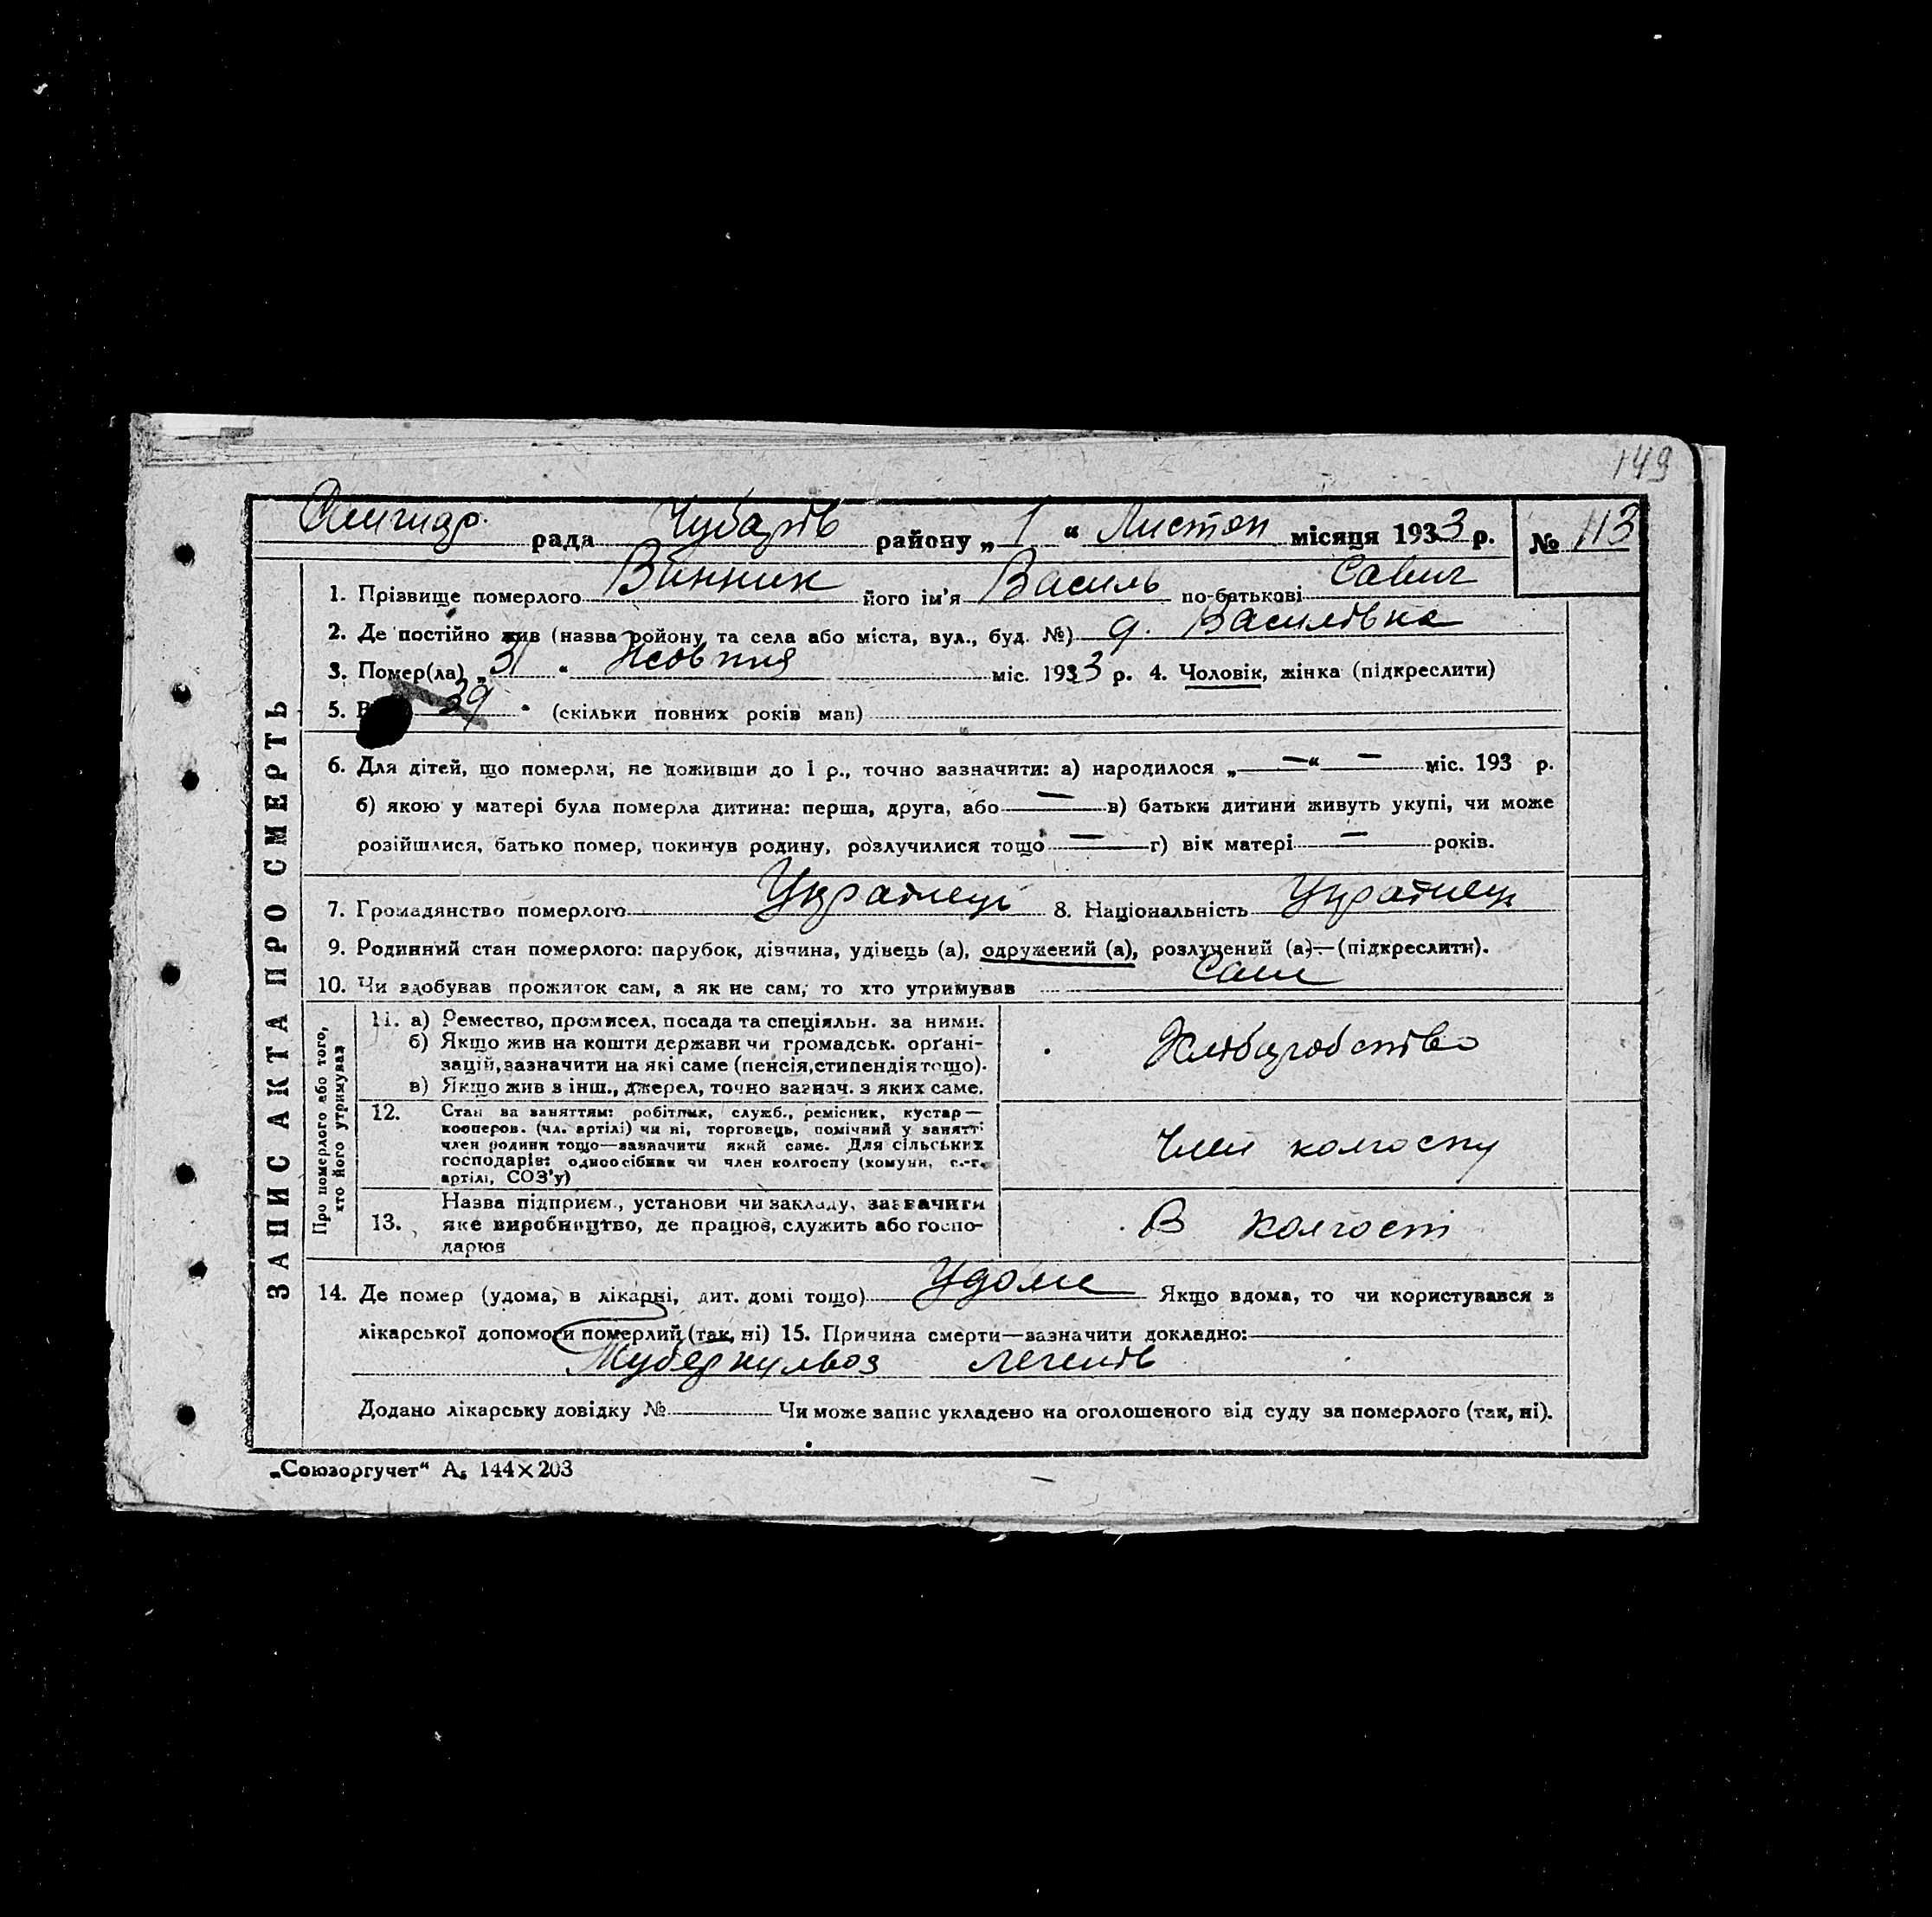 149
рада Чубарів району „ 1 “ Листоп місяця 1933 р. № 113
ЗАПИС АКТА ПРО СМЕРТЬ
1. Прізвище померлого Винник його ім'я Василь по-батькові Савич
2. Де постійно жив (назва району та села або міста, вул., буд. №) д. Василівка
3. Помер(ла) „ 31 “ Жовтня міс. 1933 р. 4. Чоловік, жінка (підкреслити)
5. 39 (скільки повних років мав)
6. Для дітей, що померли, не доживши до 1 р., точно зазначити: а) народилося „ — “ — міс. 193 р.
б) якою у матері була померла дитина: перша, друга, або — в) батьки дитини живуть укупі, чи може
розійшлися, батько помер, покинув родину, розлучилися тощо — г) вік матері — років.
7. Громадянство померлого Українець 8. Національність Українець
9. Родинний стан померлого: парубок, дівчина, удівець (а), одружений (а), розлучений (а)—(підкреслити).
10. Чи здобував прожиток сам, а як не сам, то хто утримував Сам
Про померлого або того,
хто його утримував
11. а) Ремество, промисел, посада та спеціяльн. за ними.
б) Якщо жив на кошти держави чи громадськ. орґані-
зацій, зазначити на які саме (пенсія, стипендія тощо).
в) Якщо жив з інш., джерел, точно зазнач. з яких саме.
Хліборобство
12. Стан за заняттям: робітник, служб., ремісник, кустар—
кооперов. (чл. артілі) чи ні, торговець, помічний у занятті
член родини тощо—зазначити який саме. Для сільських
господарів: одноосібник чи член колгоспу (комуни, с.-г.
артілі, СОЗ'у)
Член колгоспу
13. Назва підприєм., установи чи закладу, зазначити
яке виробництво, де працюв, служить або госпо-
дарюв
В колгоспі
14. Де помер (удома, в лікарні, дит. домі тощо) Удома Якщо вдома, то чи користувався з
лікарської допомоги померлий (так, ні) 15. Причина смерти—зазначити докладно:
Туберкульоз легенів
Додано лікарську довідку № Чи може запис укладено на оголошеного від суду за померлого (так, ні).
„Союзоргучет“ А. 144×203